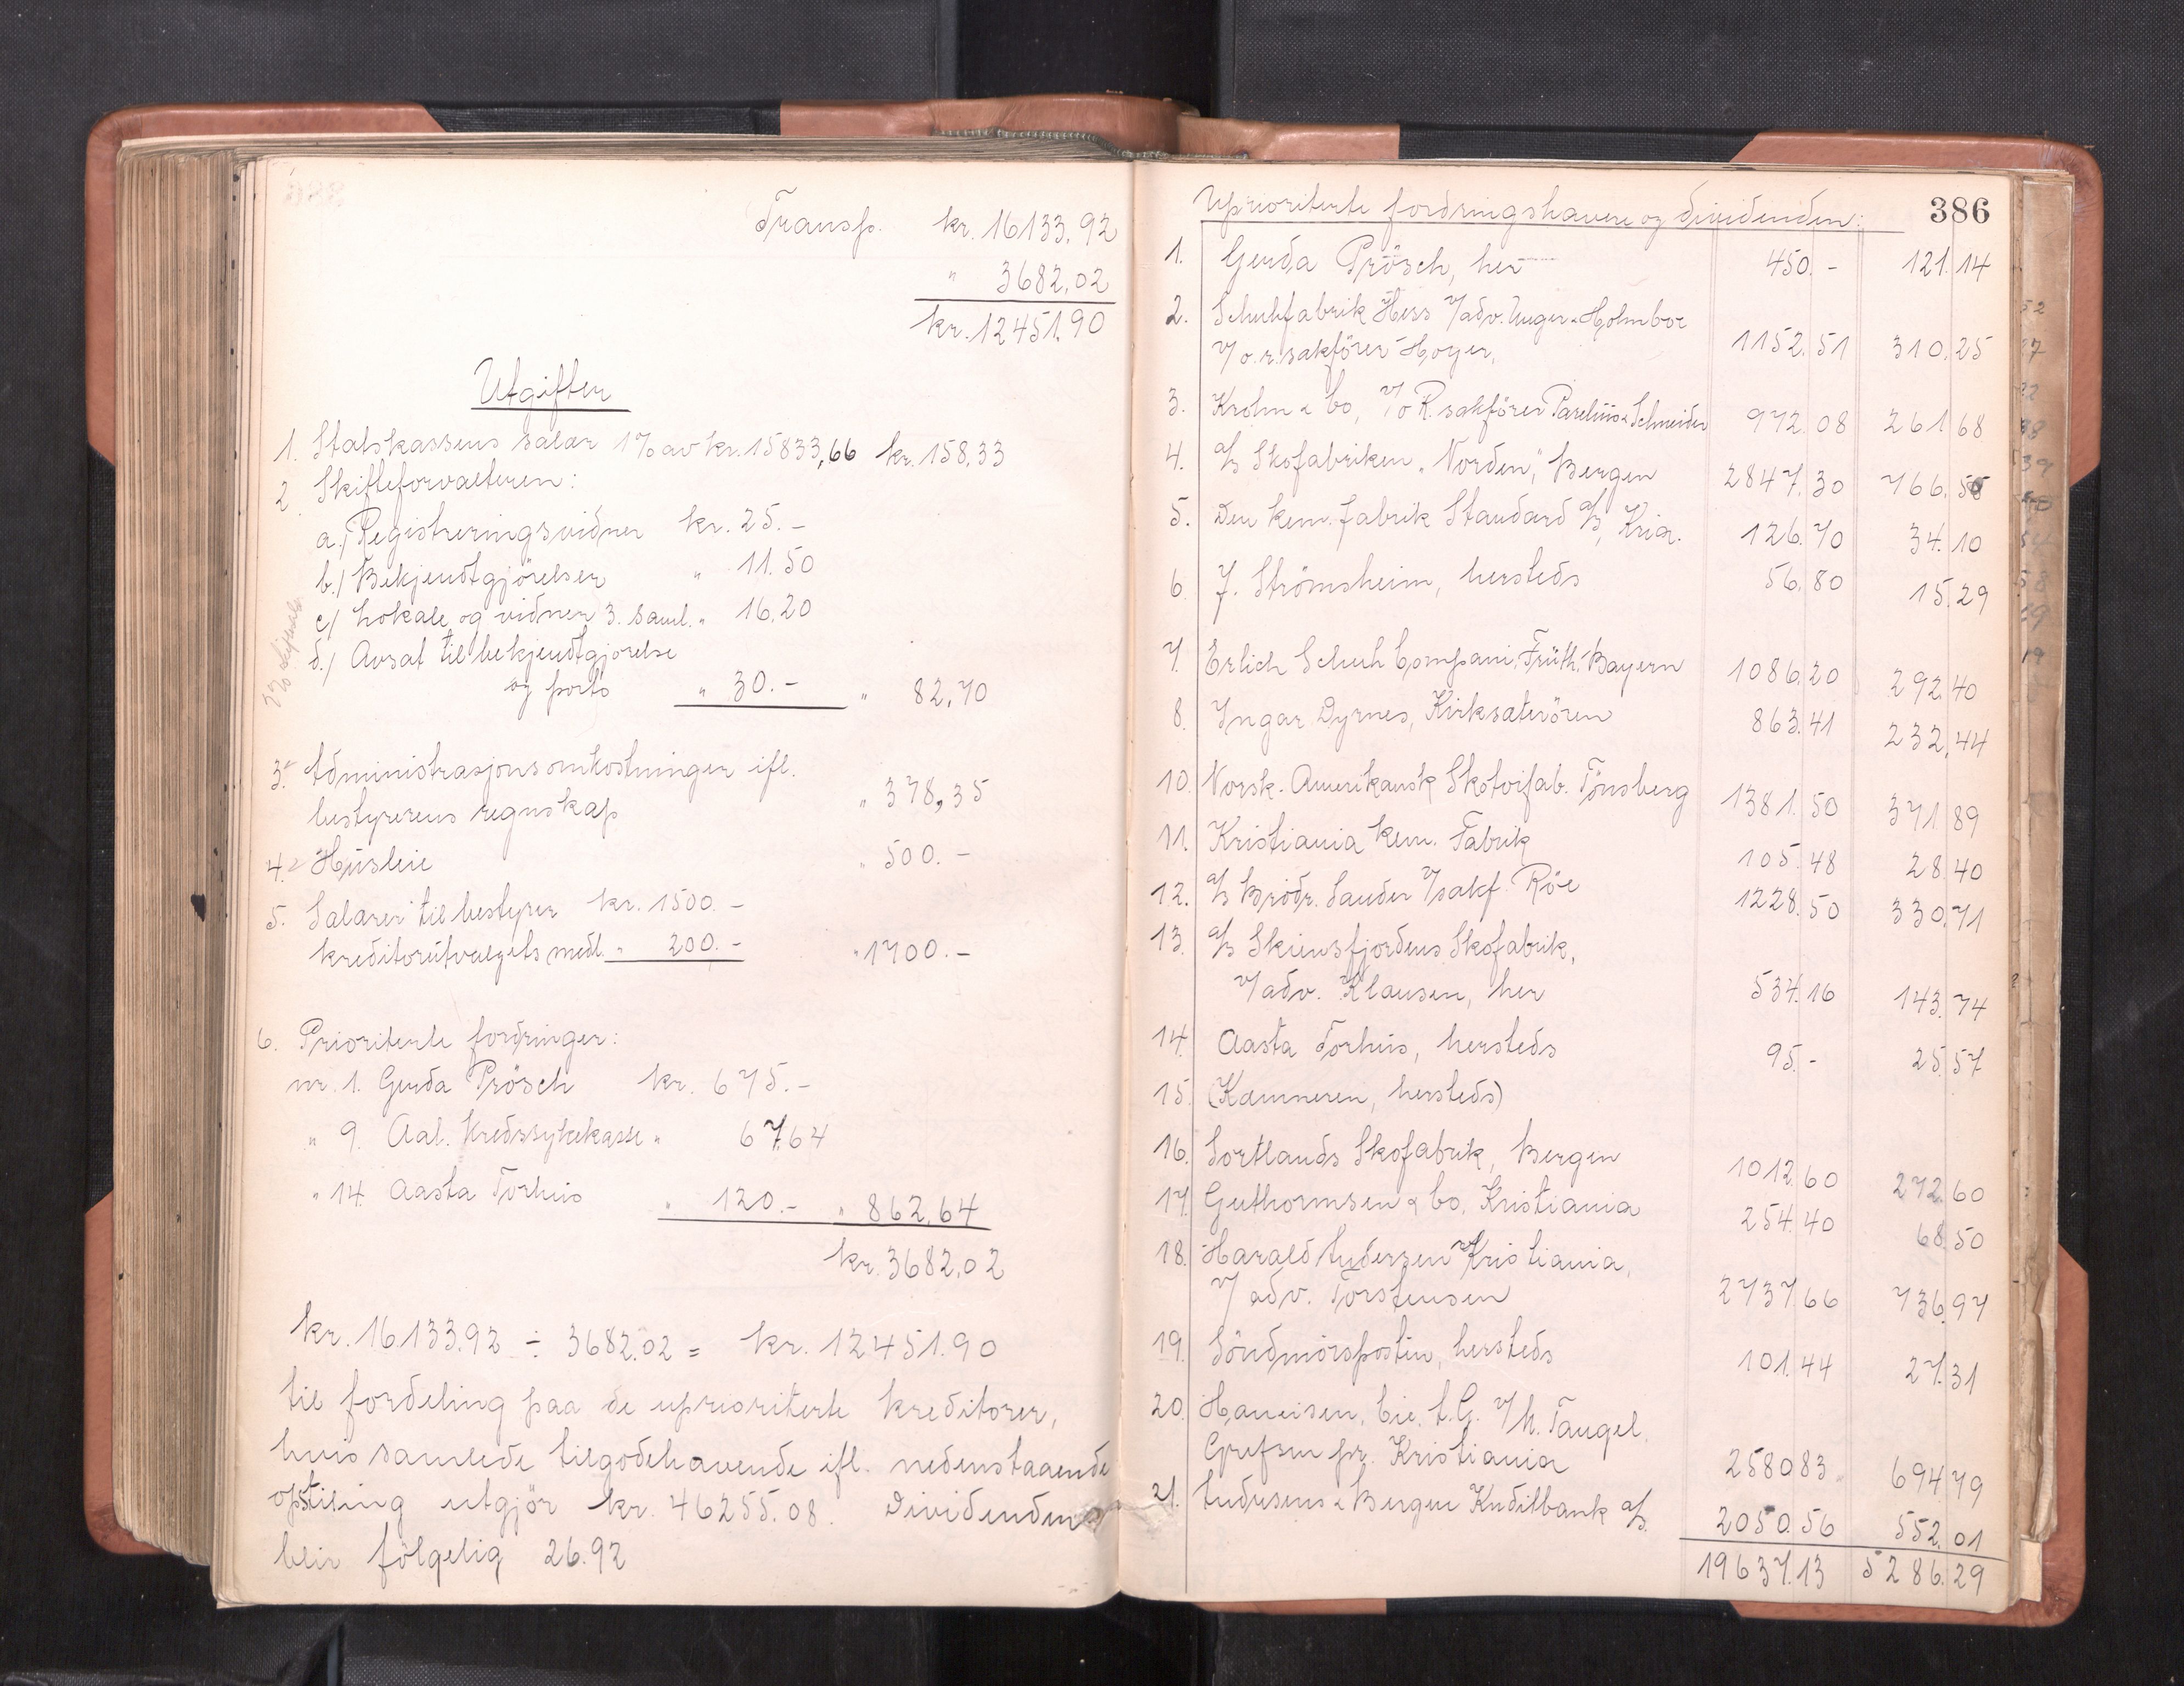 Transp. kr. 16133,92
" 3682,02
kr. 12451.90
Utgifter
1. Statskassens salær 1% av kr. 15833,66 kr. 158,33
2. Skifteforvalteren:
a./ Registreringsvidner kr. 25.-
b./ Bekjendtgjörelser " 11.50
c/ Lokale og vidner 3. saml. " 16,20
d./ Avsat til bekjendtgjörelse
og porto " 30.- " 82,70
3. Administrasjonsomkostninger ifl.
bestyrerens regnskap " 378,35
4. Húsleie " 500.-
5. Salærer til bestyrer kr. 1500.-
kreditorútvalgets medl. " 200.- " 1700.-
6. Prioriterte fordringer:
nr. 1. Gerda Prösch kr. 675.-
" 9. Aal. Kredssykekasse " 67.64
" 14. Aasta Torhús " 120.- " 862,64
kr. 3682,02
kr. 16133.92 ÷ 3682.02 = kr. 12451.90
til fordeling paa de uprioriterte kreditorer,
hvis samlede tilgodehavende ifl. nedenstaaende
opstilling utgjör kr. 46255.08. Dividenden
blir fölgelig 26.92
386
Uprioriterte fordringshavere og dividenden:
1. Gerda Prösch, her 450.- 121.14
2. Schuhfabrik Hess v/adv. Unger & Holmboe
v/o.r.sakförer Hoyer. 1152.51 310.25
3. Krohn & Co, v/o R. sakförer Pareliús & Schneider 972.08 261.68
4. A/S Skofabriken "Norden", Bergen 2847.30 766.50
5. Den kem. fabrik Standard A/S, Kria. 126.70 34.10
6. J. Strömsheim, hersteds 56.80 15.29
7. Erlich Schuh Compani, Früth. Bayern 1086.20 292.40
8. Yngar Dyrnes, Kirksæterören 863.41 232.44
10. Norsk. Amerikansk Skotöifab. Tönsberg 1381.50 371.89
11. Kristiania kem. Fabrik 105.48 28.40
12. A/S Brödr. Sauder v/sakf. Röe 1228.50 330.71
13. A/S Skiensfjordens Skofabrik,
v/adv. Klausen, her 534.16 143.74
14. Aasta Torhús, hersteds 95.- 25.57
15. (Kæmneren, hersteds)
16. Sortlands Skofabrik, Bergen 1012.60 272.60
17. Guthormsen & Co. Kristiania 254.40 68.50
18. Harald Andersen Kristiania,
v/adv. Torstensen 2737.66 736.97
19. Söndmörsposten, hersteds 101.44 27.31
20. Haneisen, Cie. t.G. v/h. Tangel.
Grefsen pr. Kristiania 2580.83 694.79
21. Andresens & Bergens Kreditbank A/S. 2050.56 552.01
19637.13 5286.29